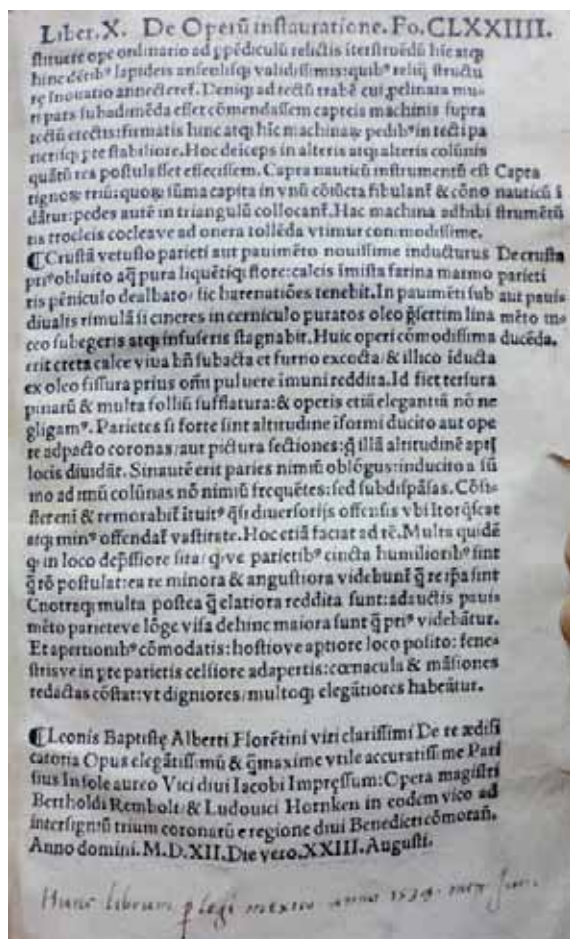 Liber. X. De Operũ instauratione. Fo. CLXXIIII.
stituere ope ordinario ad ꝑpẽdiculũ relictis iterstruẽdũ hic atqꝫ
hinc dẽtibꝰ lapideis ansulisqꝫ validissimis: quibꝰ structu
re inouatio annecteret᷑. Deniqꝫ ad tectũ trabẽ cui ꝑclinata mu
ri pars subadimẽda esset cõmendassem capreis machinis supra
tectũ erectis: firmatis hinc atqꝫ hic machinaꝝ pedibꝰ in tecti pa
rte stabiliore. Hoc deiceps in alteris atqꝫ alteris colũnis
quãtũ res postulasset effecissem. Capra nauticũ instrumentũ est
tignoꝝ triũ: quoꝝ sũma capita in vnũ cõiũcta fibulant᷑ & cõno
dãtur: pedes autẽ in triangulũ collocant᷑. Hac machina adhibi
tis trocleis cocleave ad onera tollẽda vtimur commodissime.
Capra
nauticũ ĩ
strumẽtũ
¶Crustã vetusto parieti aut pauimẽto nouissime inducturus
priꝰ obluito aq̃ pura liquẽtiqꝫ flore: calcis ĩmista farina marmo
ris pẽniculo dealbato/ sic harenatiões tenebit. In pauimẽti sub
diualis rimulã si cineres in cerniculo putatos oleo p̃sertim lina
ceo subegeris atqꝫ infuseris stagnabit. Huic operi cõmodissima
erit creta calce viua bñ subacta et furno excocta/ & illico ĩducta
De crusta
parieti
aut paui
mẽto in
ducẽda.
ex oleo fissura prius oĩm puluere imuni reddita. Id fiet tersura
pinarũ & multa folliũ sufflatura: & operis etiã elegantiã nõ ne
gligamꝰ. Parietes si forte sint altitudine iformi ducito aut ope
re adpacto coronas/ aut pictura sectiones: q̃ illã altitudinẽ aptꝭ
locis diuidãt. Sin autẽ erit paries nimiũ oblõgus: inducito a sũ
mo ad imũ colũnas nõ nimiũ frequẽtes: sed subdispãsas. Cõsi
steret᷑ & remorabit᷑ ituitꝰ diuersorijs offensis vbi
atqꝫ minꝰ offendat᷑ vastitate. Hoc etiã faciat ad rẽ. Multa quidẽ
qꝫ in loco dep̃ssiore sita: qꝫve parietibꝰ cincta humilioribꝰ sint
q̃ rõ postulat: ea re minora & angustiora videbunt᷑ q̃ re ip̃a sint
Cõtraqꝫ multa postea q̃ elatiora reddita sunt: adauctis paui
mẽto parieteve lõge visa dehinc maiora sunt q̃ priꝰ videbãtur.
Et apertionibꝰ cõmodatis: hostiove aptiore loco posito: fene
strisve in ꝑte parietis celsiore adapertis: cœnacula & mãsiones
redactas cõstat: vt digniores/ multoqꝫ elegãtiores habeãtur.
¶Leonis Baptistę Alberti Florẽtini viri clarissimi De re ædifi
catoria Opus elegãtissimũ & q̃maxime vtile accuratissime Pari
sius In sole aureo Vici diui Iacobi Impręssum: Opera magistri
Bertholdi Rembolt & Ludouici Hornken in eodem vico ad
intersigniũ trium coronarũ e regione diui Benedicti cõmorañ.
Anno domini. M.D.XII. Die vero. XXIII. Augusti.
Hunc librum ꝑlegi mexico anno 1539.